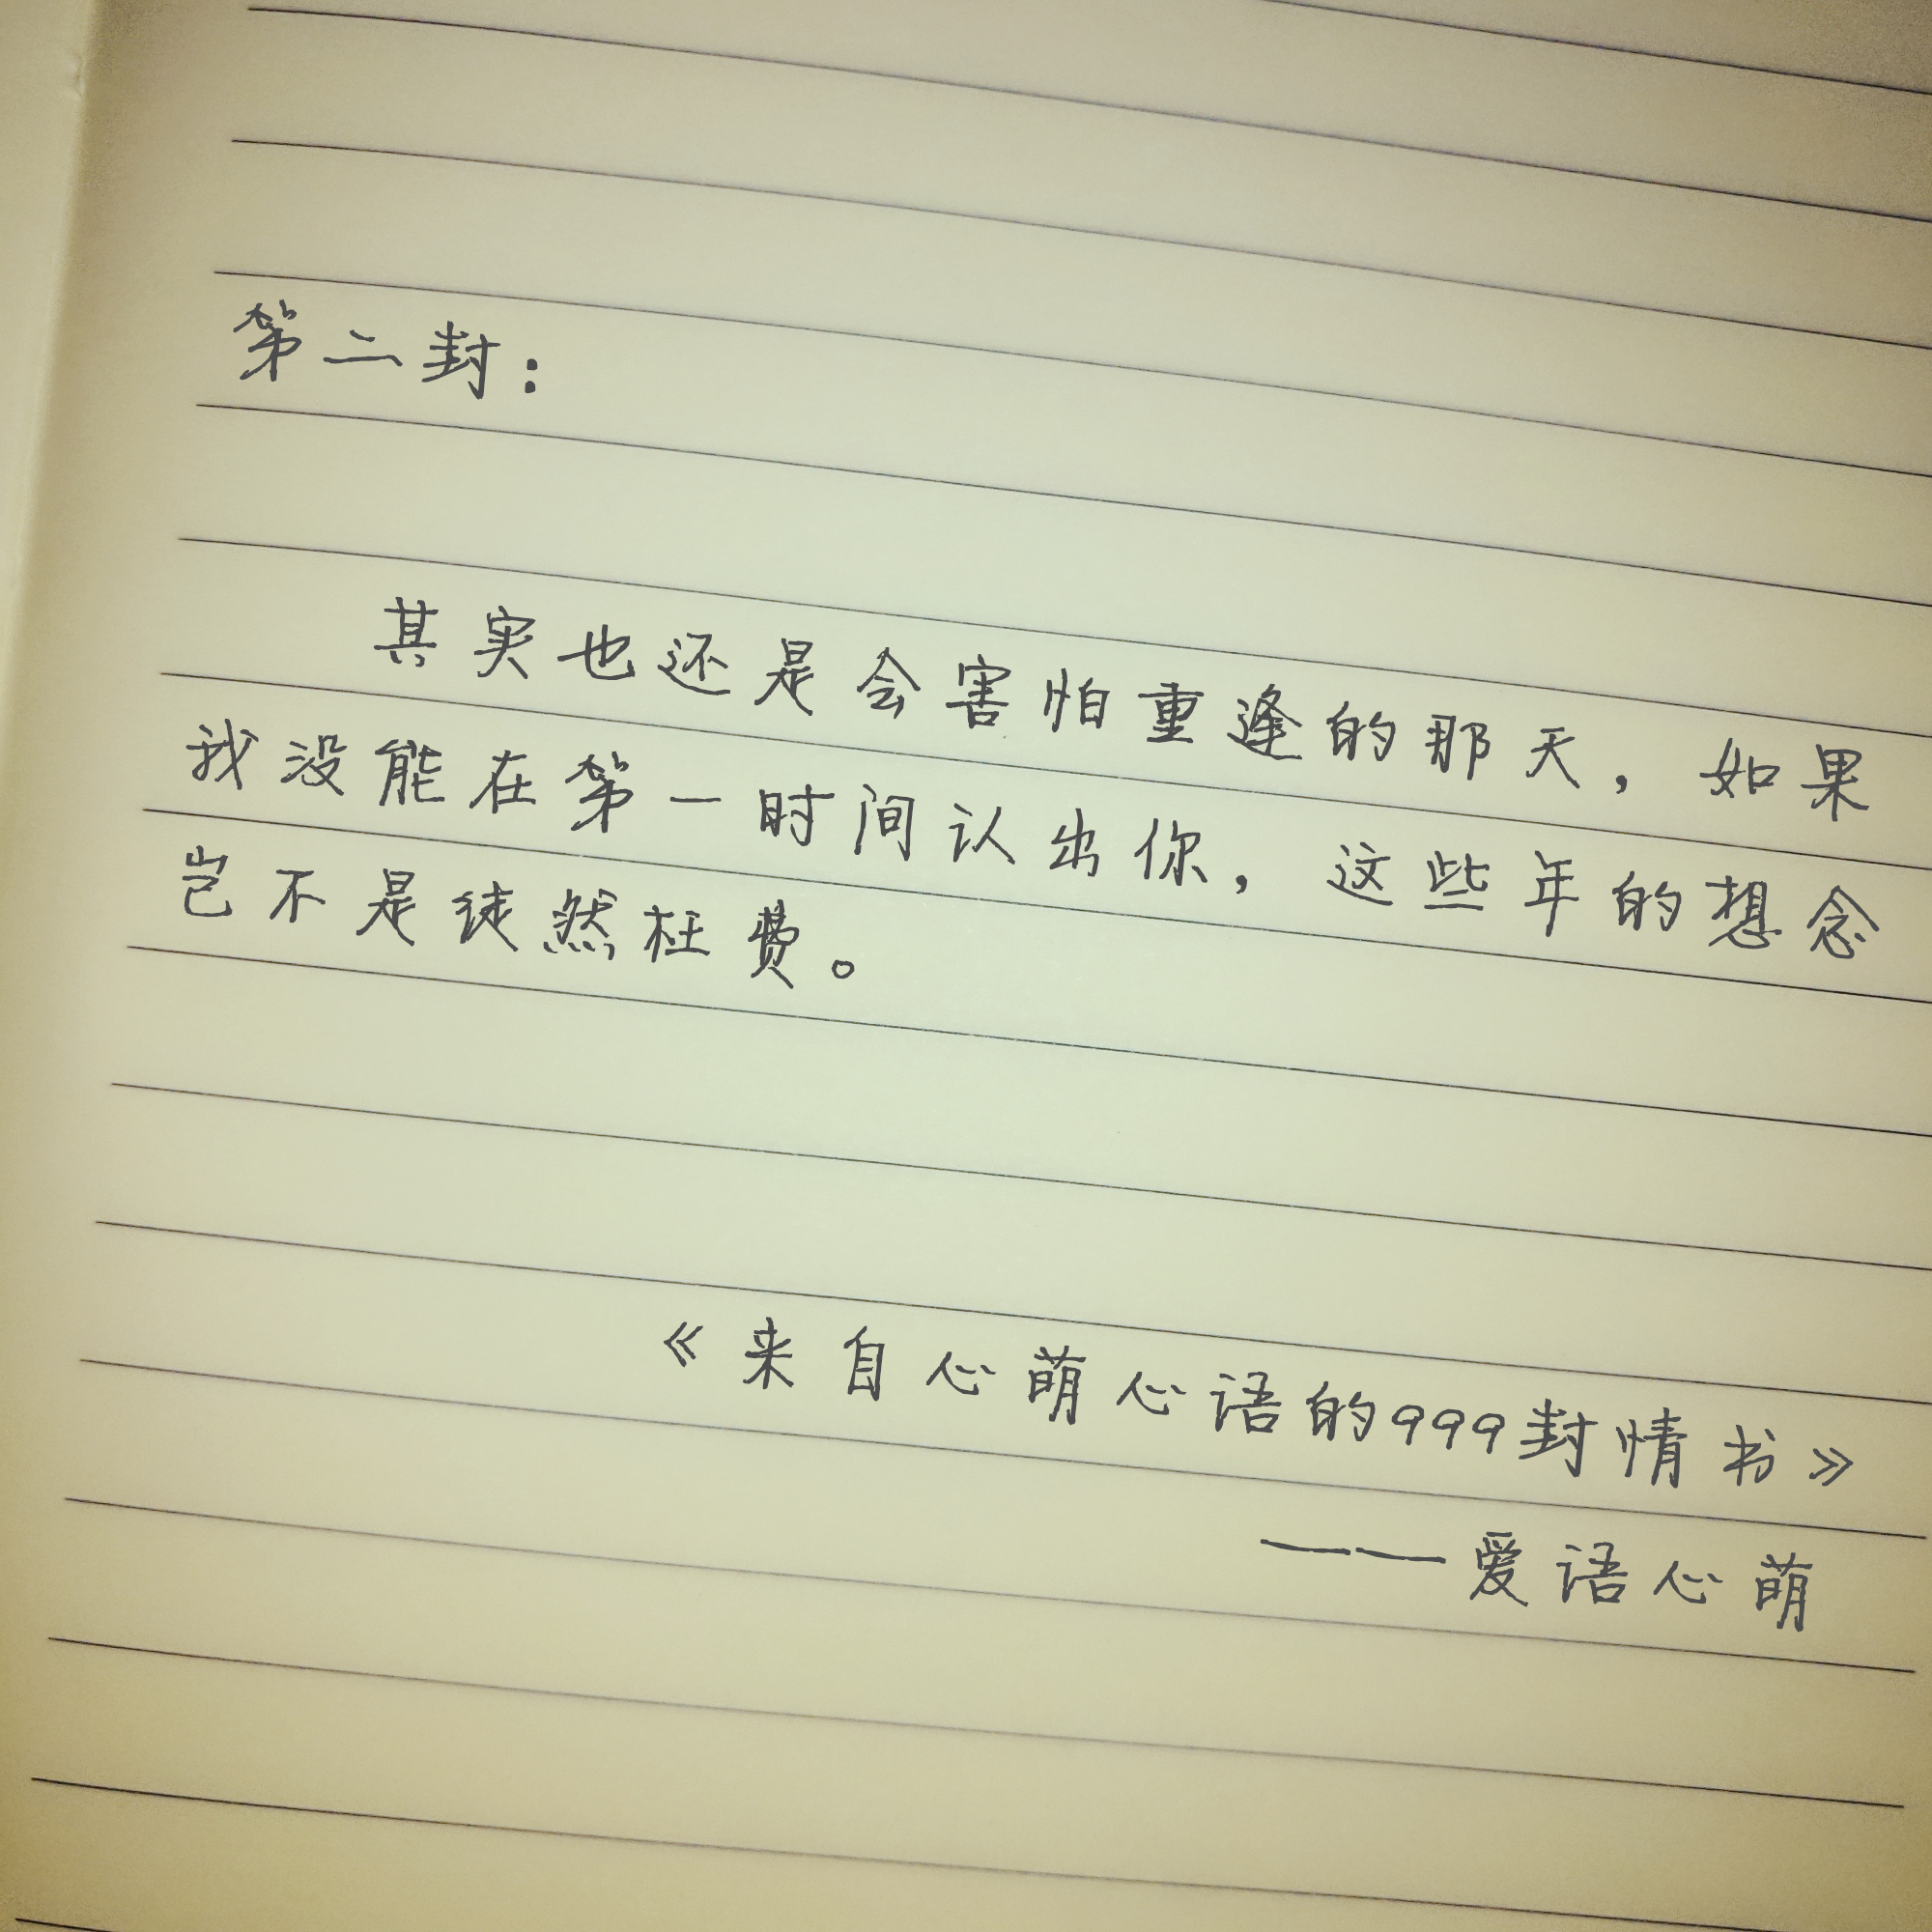 第二封：
其实也还是会害怕重逢的那天，如果
我没能在第一时间认出你，这些年的想念
岂不是徒然枉费。
《来自心萌心语的999封情书》
——爱语心萌